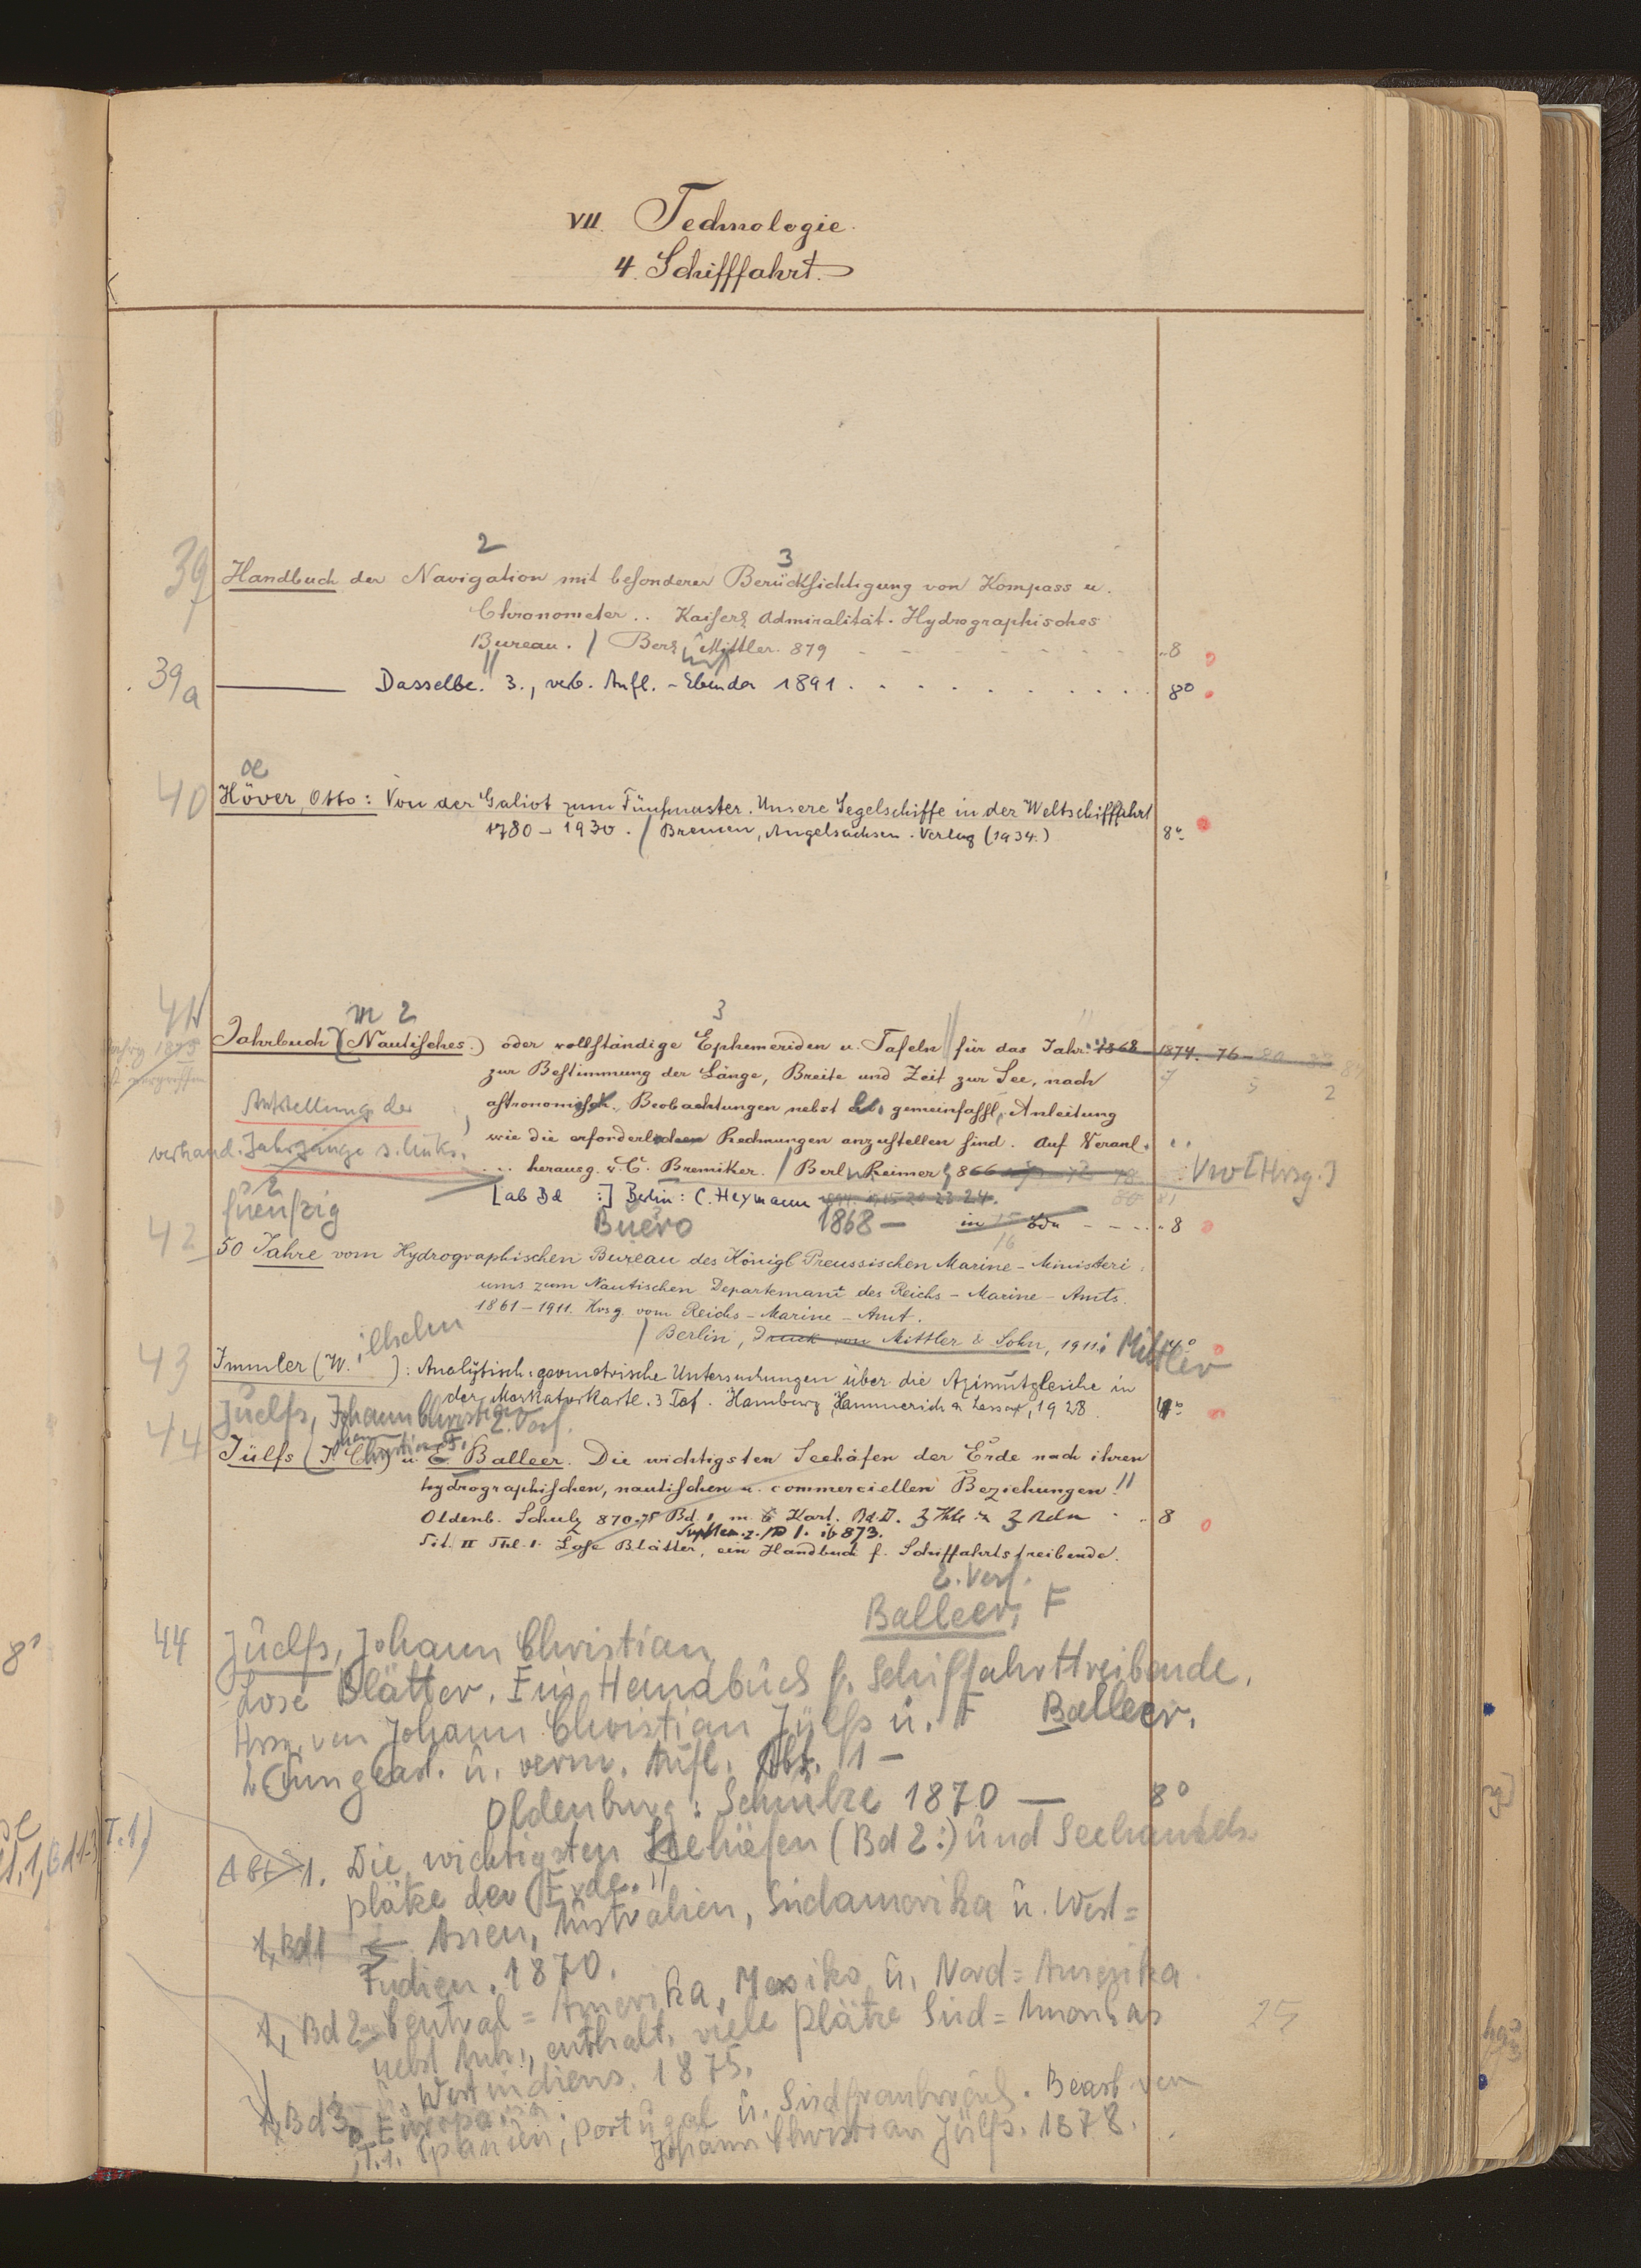 VII. Technologie.
4. Schifffahrt.
2 3
39 Handbuch der Navigation mit besonderer Berücksichtigung von Kompass u.
Chronometer .. Kaiserl Admiralität. Hydrographisches
Bureau. / Berl Mittler. 879 8
39a Dasselbe. 3., verb. Aufl. - Ebenda 1891 8°
oe
40 Höver, Otto: Von der Galiot zum Fünfmaster. Unsere Segelschiffe in der Weltschifffahrt
1780 - 1930. / Bremen, Angelsachsen-Verlag (1934.) 8°
41
m 2 3
Jahrbuch (Nautisches.) oder vollständige Ephemeriden u. Tafeln für das Jahr 1868 1874. 76-80
zur Bestimmung der Länge, Breite und Zeit zur See, nach
astronomisch. Beobachtungen nebst gemeinfassl. Anleitung
wie die erforderlichen Rechnungen anzustellen sind. Auf Veranl.
Aufstellung der
vorhand. Jahrgänge s. links.
... herausg. v. C. Bremiker. / Berl Reimer 866 Vw [Hrsg.]
[ab Bd :] Berlin: C. Heymann
1868 - in 16 Bdn 8
fuenfzig Buero
42 50 Jahre vom Hydrographischen Bureau des Königl Preussischen Marine-Ministeri
ums zum Nautischen Departmant des Reichs-Marine-Amts.
1861-1911. Hrsg. vom Reichs-Marine-Amt.
/ Berlin, Druck von Mittler & Sohn, 1911. Mittler 4°
ilhelm
43 Immler (W. ): Analytisch-geometrische Untersuchungen über die Azimutgleiche in
der Merkatorkarte. 3 Taf. Hamburg, Hammerich & Lesser, 1928. 4°
Juelfs, Johann Christian 2. Verf.
44 Jülfs (J. Chr.) u. F. Balleer. Die wichtigsten Seehäfen der Erde nach ihren
hydrographischen, nautischen u. commerciellen Beziehungen!
Oldenb. Schulz 870-75 Bd 1 m. 6 Kart. Bd. II. 8
Supplem. z. Bd 1. ib 873.
Tit. II Thl. 1. Lose Blätter, ein Handbuch f. Schiffahrtstreibende.
2. Verf.
Balleer, F
44 Juelfs, Johann Christian
Lose Blätter. Ein Handbuch f. Schiffahrttreibende.
Hrsg. von Johann Christian Jülfs u. F Balleer.
2. umgearb. u. verm. Aufl. Abt. 1 -
Oldenburg: Schulze 1870 - 8°
Abt 1. Die wichtigsten Seehäfen (Bd 2:) und Seehandels-
plätze der Erde.
1, Bd 1 Asien, Australien, Südamerika u. West=
Indien. 1870.
1, Bd 2 Central=Amerika, Mexiko u. Nord=Amerika
nebst Anh., enthalt. viele Plätze Süd=Amerikas
u. Westindiens. 1875.
25
1, Bd 3. Europa
T.1. Spanien, Portugal u. Südfrankreich. Bearb von
Johann Christian Jülfs. 1878.
8°
T.1)